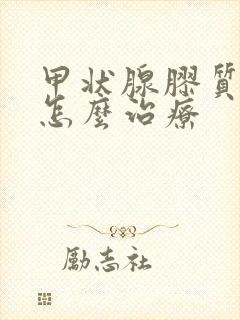 甲状腺膠質
怎麼治療
勵志社